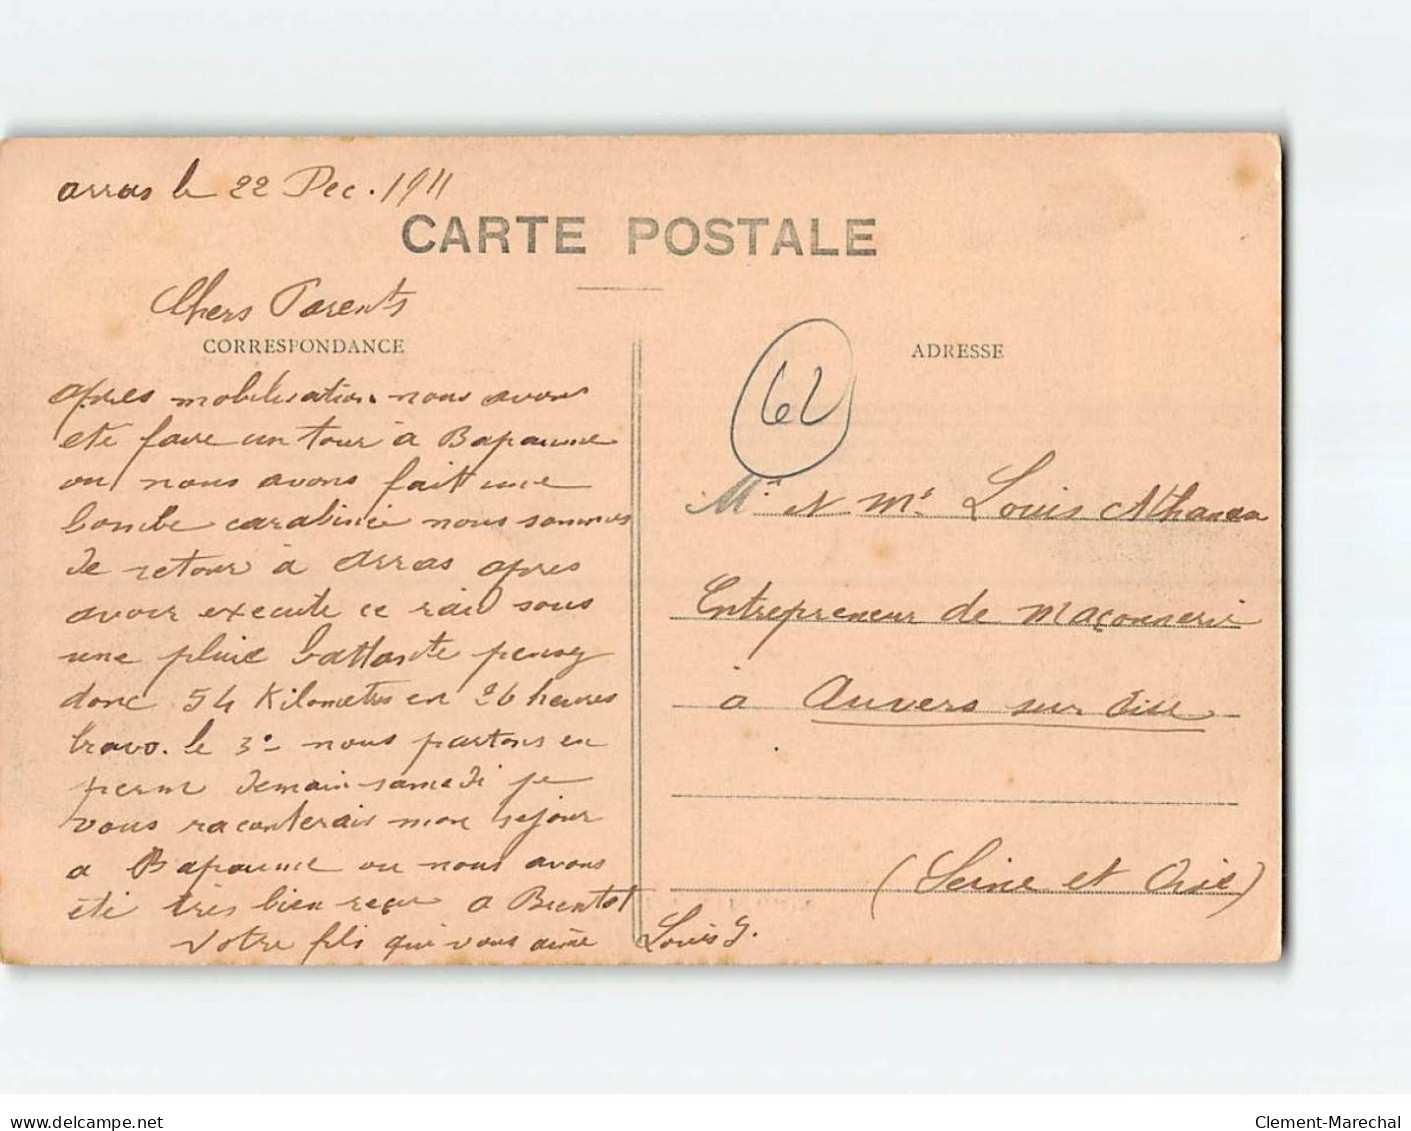 arras le 22 Dec. 1911
CARTE POSTALE
Chers Parents
CORRESPONDANCE
apres mobilisation nous avons
eté faire un tour à Bapaume
ou nous avons fait une
bombe carabinée nous sommes
de retour à Arras apres
avoir execute ce raid sous
une pluie battante pensez
donc 54 Kilometres en 26 heures
bravo. le 3e nous partons en
perm demain samedi je
vous raconterais mon sejour
a Bapaume ou nous avons
été très bien reçu a Bientot
Votre fils qui vous aime Louis
ADRESSE
62
Mr Me Louis
Entrepreneur de maçonnerie
à Auvers sur Oise
(Seine et Oise)
delcampe.net
Clement-Marechal